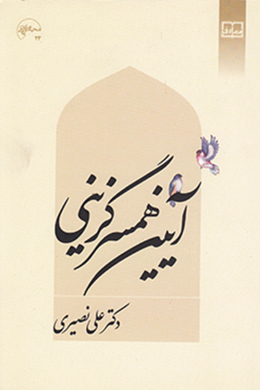 ۲۳
آیین همسرگزینی
دکتر علی نصیری